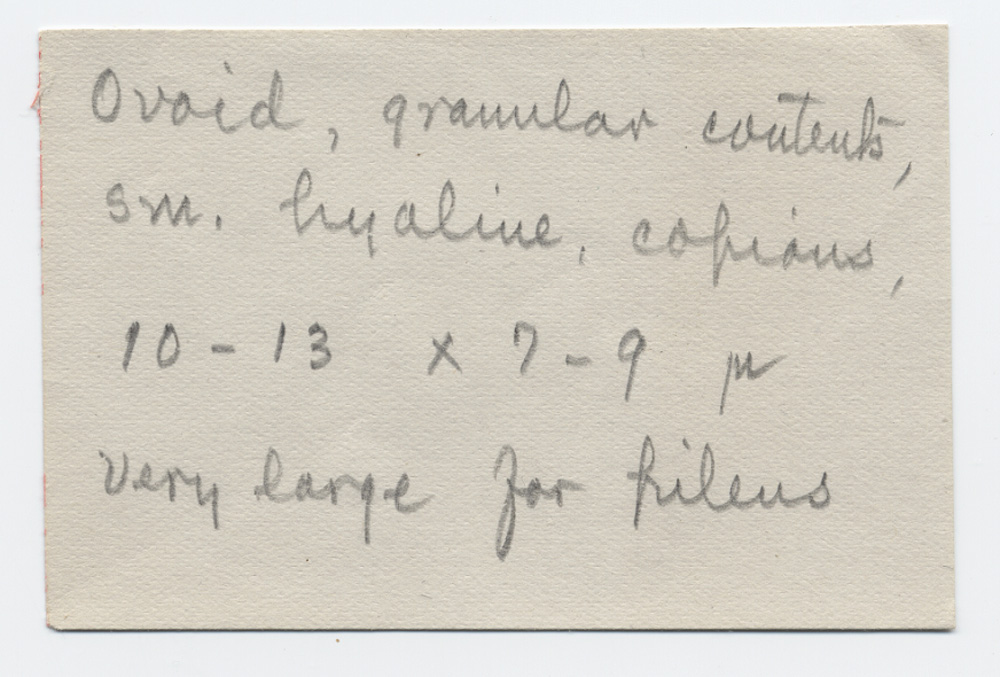 Ovoid, granular contents,
sm. hyaline, copious,
10 - 13 x 7 - 9 µ
Very large for pileus